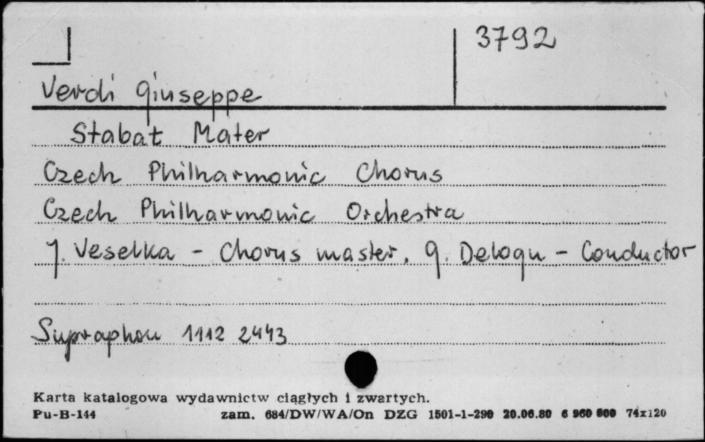 3792
Verdi Giuseppe
Stabat Mater
Czech Philharmonic Chorus
Czech Philharmonic Orchestra
J. Veselka - Chorus master, G. Delogu - Conductor
Supraphon 1112 2443
Karta katalogowa wydawnictw ciągłych i zwartych.
Pu-B-144 zam. 684/DW/WA/On DZG 1501-1-290 20.06.80 6 960 000 74x120